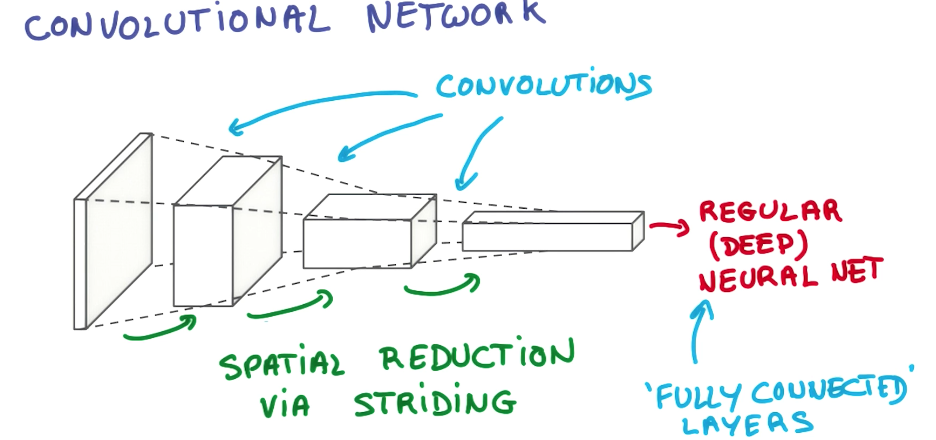 CONVOLUTIONAL NETWORK
CONVOLUTIONS
REGULAR
(DEEP)
NEURAL NET
SPATIAL REDUCTION
VIA STRIDING
'FULLY CONNECTED'
LAYERS